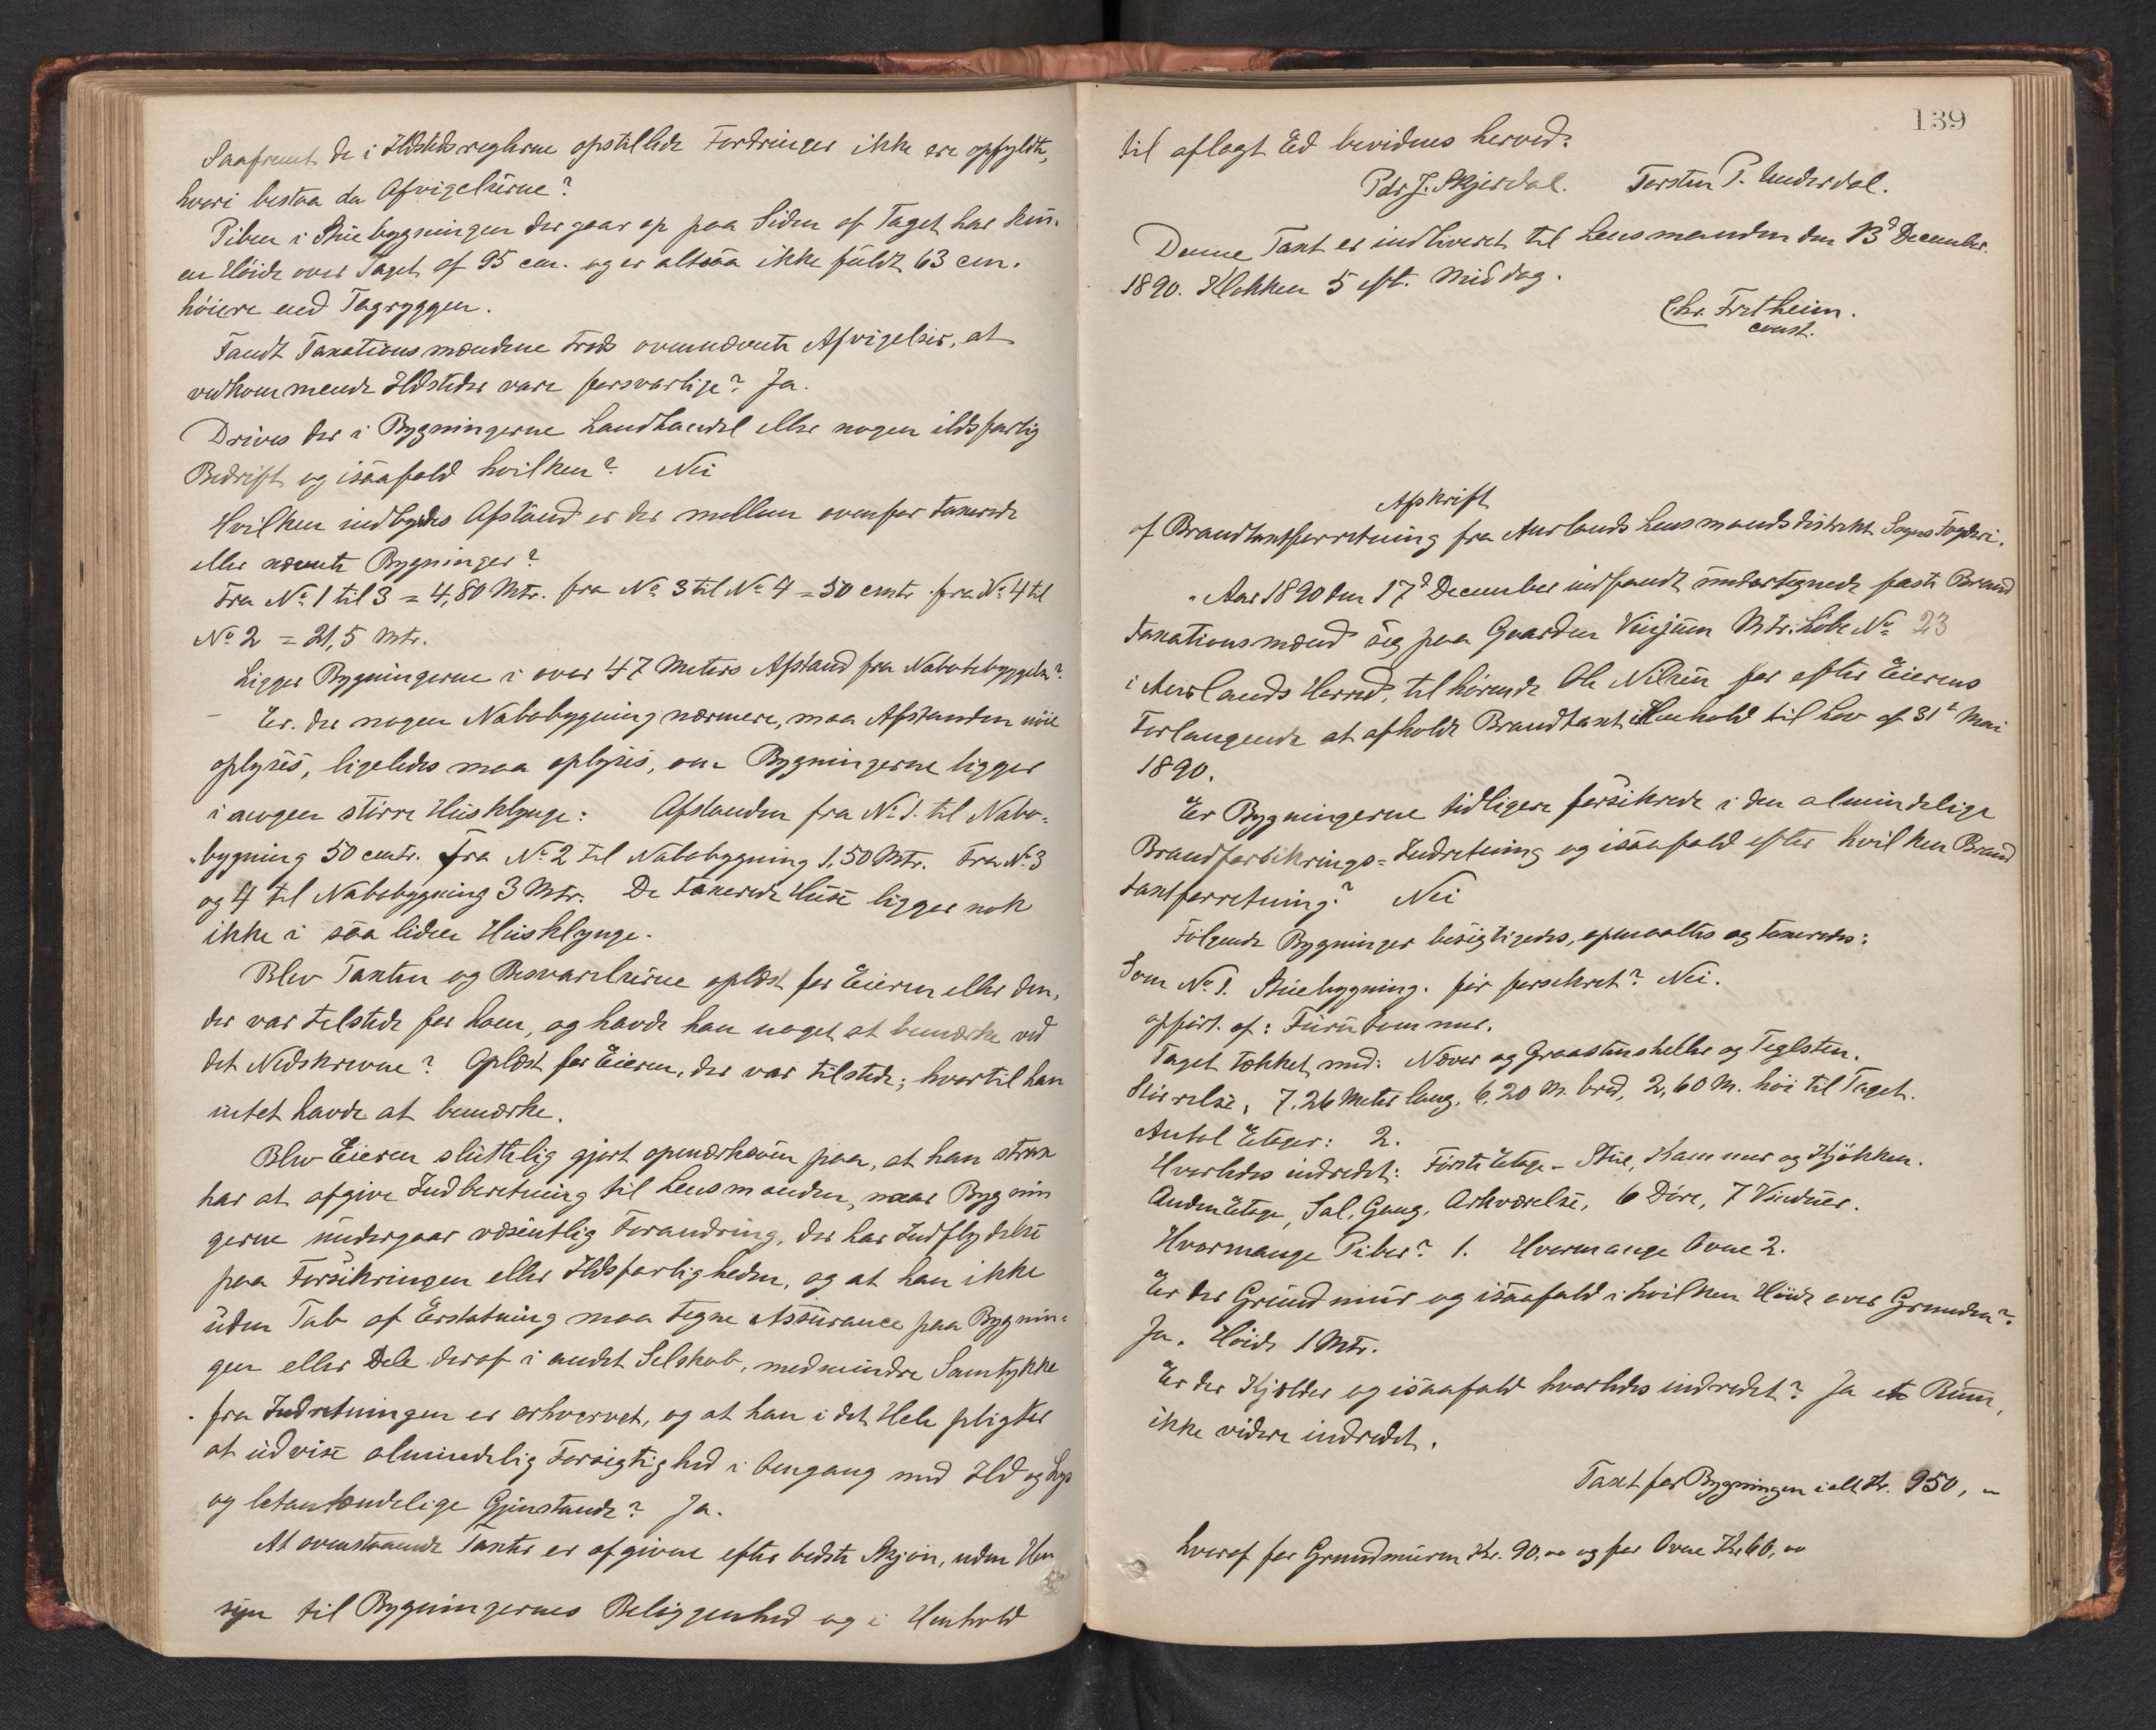 Saafremt de i Ildstedsreglerne opstillede Fordringer ikke ere opfyldte,
hvori bestaa da Afvigelserne?
Piben i Stuebygningen der gaar op paa Siden af Taget har kun
en Høide over Taget af 95 cm. og er altsaa ikke fuldt 63 cm.
høiere end Tagryggen.
Fandt Taxationsmændene trods ovennævnte Afvigelser, at
vedkommende Ildsteder vare forsvarlige? Ja.
Drives der i Bygningerne Landhandel eller nogen ildsfarlig
Bedrift og isaafald hvilken? Nei
Hvilken indbyrdes Afstand er der mellem ovenfor taxerede
eller nævnte Bygninger?
Fra No 1 til 3 = 4,80 Mtr. fra No 3 til No 4 = 50 cmtr. fra No 4 til
No 2 = 21,5 Mtr.
Ligger Bygningerne i over 47 Meters Afstand fra Nabobebyggelse?
Er der nogen Nabobygning nærmere, maa Afstanden nøie
oplyses, ligeledes maa oplyses, om Bygningerne ligger
i nogen større Husklynge: Afstanden fra No 1. til Nabo-
bygning 50 cmtr. Fra No 2 til Nabobygning 1,50 Mtr. Fra No 3
og 4 til Nabobygning 3 Mtr. De taxerede Huse ligger nok
ikke i saa liden Husklynge.
Blev Taxten og Besvarelserne oplæst for Eieren eller den,
der var tilstede for ham, og havde han noget at bemærke ved
det Nedskrevne? Oplæst for Eieren, der var tilstede; hvortil han
intet havde at bemærke.
Blev Eieren sluttelig gjort opmærksom paa, at han strax
har at afgive Indberetning til Lensmanden, naar Bygnin
gerne undergaar væsentlig Forandring, der har Indflydelse
paa Forsikringen eller Ildsfarligheden, og at han ikke
uden Tab af Erstatning maa tegne Assurance paa Bygnin-
gen eller Dele deraf i andet Selskab, medmindre Samtykke
fra Indretningen er erhvervet, og at han i det Hele pligter
at udvise almindelig Forsigtighed i Omgang med Ild og Lys
og letantændelige Gjenstande? Ja.
At ovenstaaende Taxter er afgivne efter bedste Skjøn, uden Hen
syn til Bygningernes Beliggenhed og i Henhold
139
til aflagt Ed bevidnes herved.
Peder J. Skjerdal. Torsten P. Underdal.
Denne Taxt er indleveret til Lensmanden den 13d December
1890. Klokken 5 eft. Middag.
Chr. Fretheim.
const.
Afskrift
af Brandtaxtforretning fra Aurlands Lensmandsdistrikt Sogns Fogderi.
"Aar 1890 den 17d December indfandt undertegnede faste Brand
taxationsmænd sig paa Gaarden Vinjum Mtr. Løbe No 23
i Aurlands Herred, tilhørende Ole Nilsen for efter Eierens
Forlangende at afholde Brandtaxt i Henhold til Lov af 31te Mai
1890.
Er Bygningerne tidligere forsikrede i den almindelige
Brandforsikrings-Indretning og isaafald efter hvilken Brand
taxtforretning? Nei
Følgende Bygninger besigtigedes, opmaaltes og taxeredes:
Som No 1. Stuebygning. før forsikret? Nei.
opført af: Furutømmer.
Taget tækket med: Næver og Graastenheller og Teglsten.
Størrelse, 7,26 Meter lang, 6,20 M. bred, 2,60 M. høi til Taget.
Antal Etager: 2.
Hvorledes indredet: Første Etage - Stue, Kammer og Kjøkken.
Anden Etage, Sal, Gang, Arkværelse, 6 Døre, 7 Vinduer.
Hvormange Piber? 1. Hvormange Ovne 2.
Er der Grundmur og isaafald i hvilken Høide over Grunden?
Ja. Høide 1 Mtr.
Er der Kjælder og isaafald hvorledes indredet? Ja et Rum,
ikke videre indredet.
Taxt for Bygningen i alt Kr. 950, "
hvoraf for Grundmuren Kr. 90,00 og for Ovne Kr 60,00